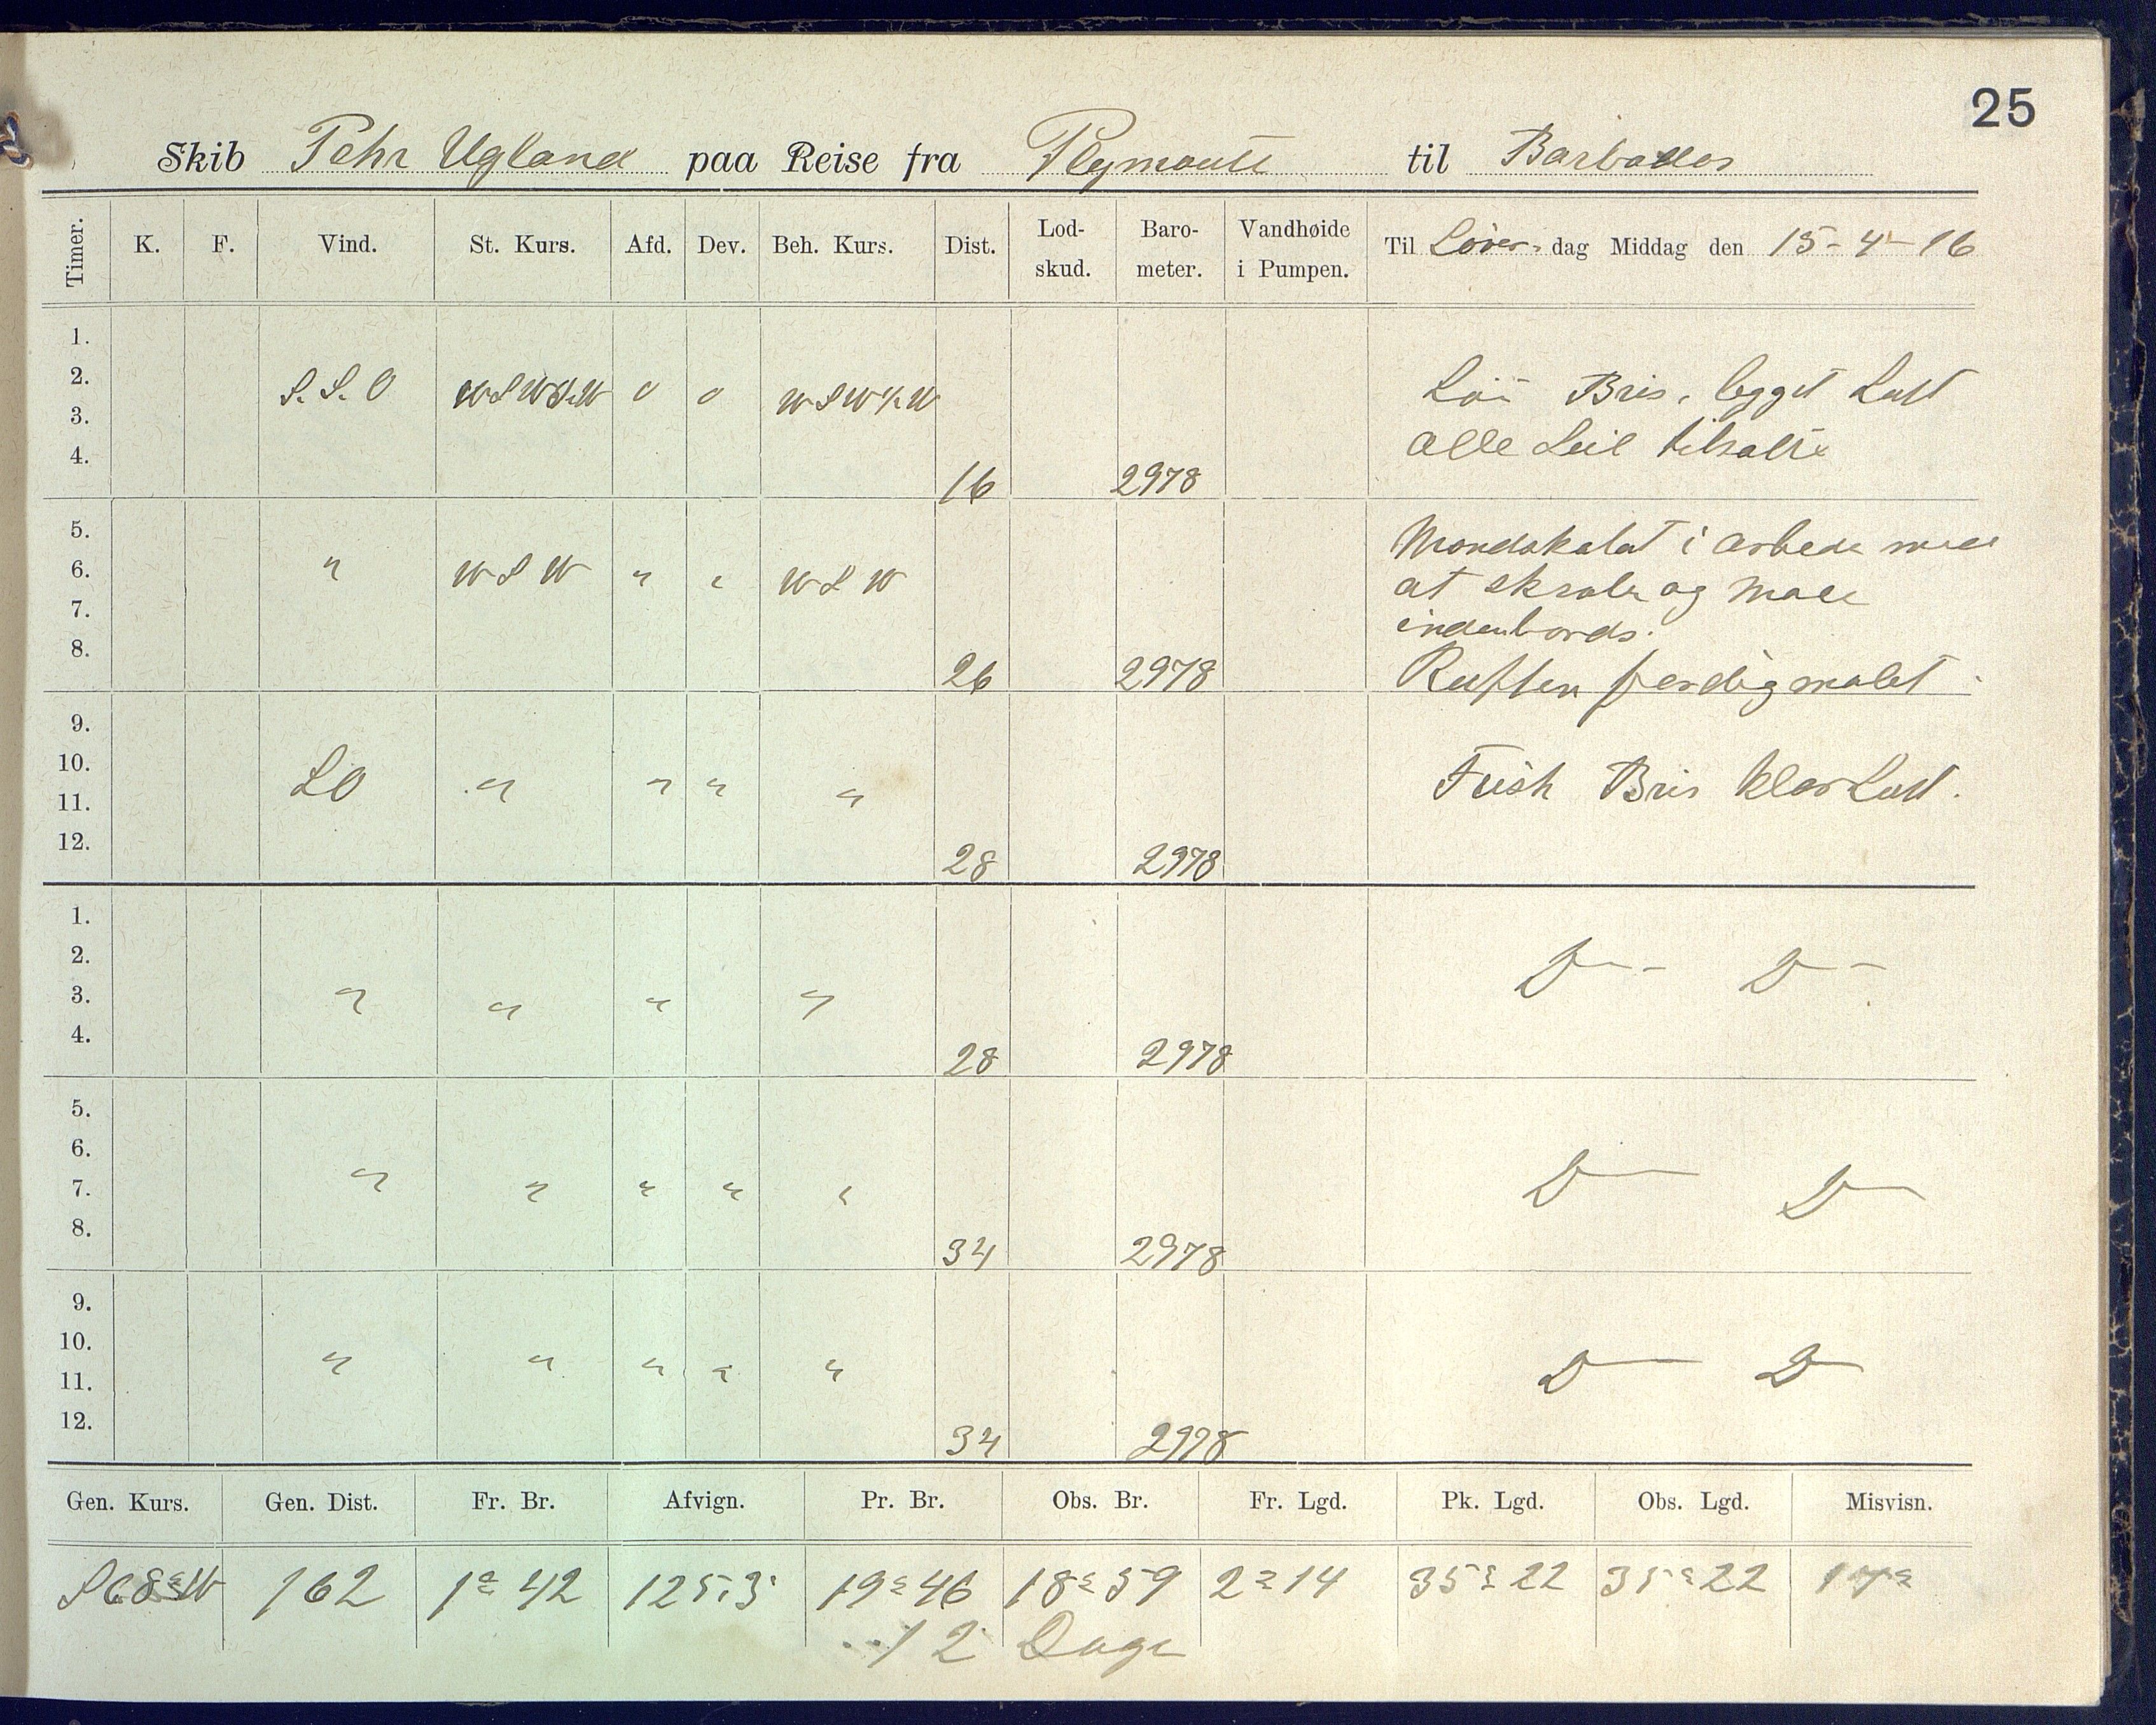 25
Skib Pehr Ugland paa Reise fra Plymouth til Barbados
Timer. K. F. Vind. St. Kurs. Afd. Dev. Beh. Kurs. Dist. Lod-skud. Baro-meter. Vandhøide i Pumpen. Til Löver-dag Middag den 15-4-16
1.
2. S.S.O WSW½W 0 0 WSW½W Löi Bris, legget Luft
3.
4. 16 2978 alle Seil tilsatte
5. Mandskabet i arbede med
6. " WSW " " WSW at skrabe og male
7. indenbords.
8. 26 2978 Ruften ferdig malet.
9.
10. SO " " " " Frisk Bris klar Luft.
11.
12. 28 2978
1.
2. D - D -
3. " " " "
4. 28 2978
5.
6.
7. " " " " " D - D -
8. 34 2978
9.
10. " " " " " D - D
11.
12. 34 2978
Gen. Kurs. Gen. Dist. Fr. Br. Afvign. Pr. Br. Obs. Br. Fr. Lgd. Pk. Lgd. Obs. Lgd. Misvisn.
S68°W 162 1° 42 125,3 19° 46 18° 59 2° 14 35° 22 35° 22 17°
12 Dage